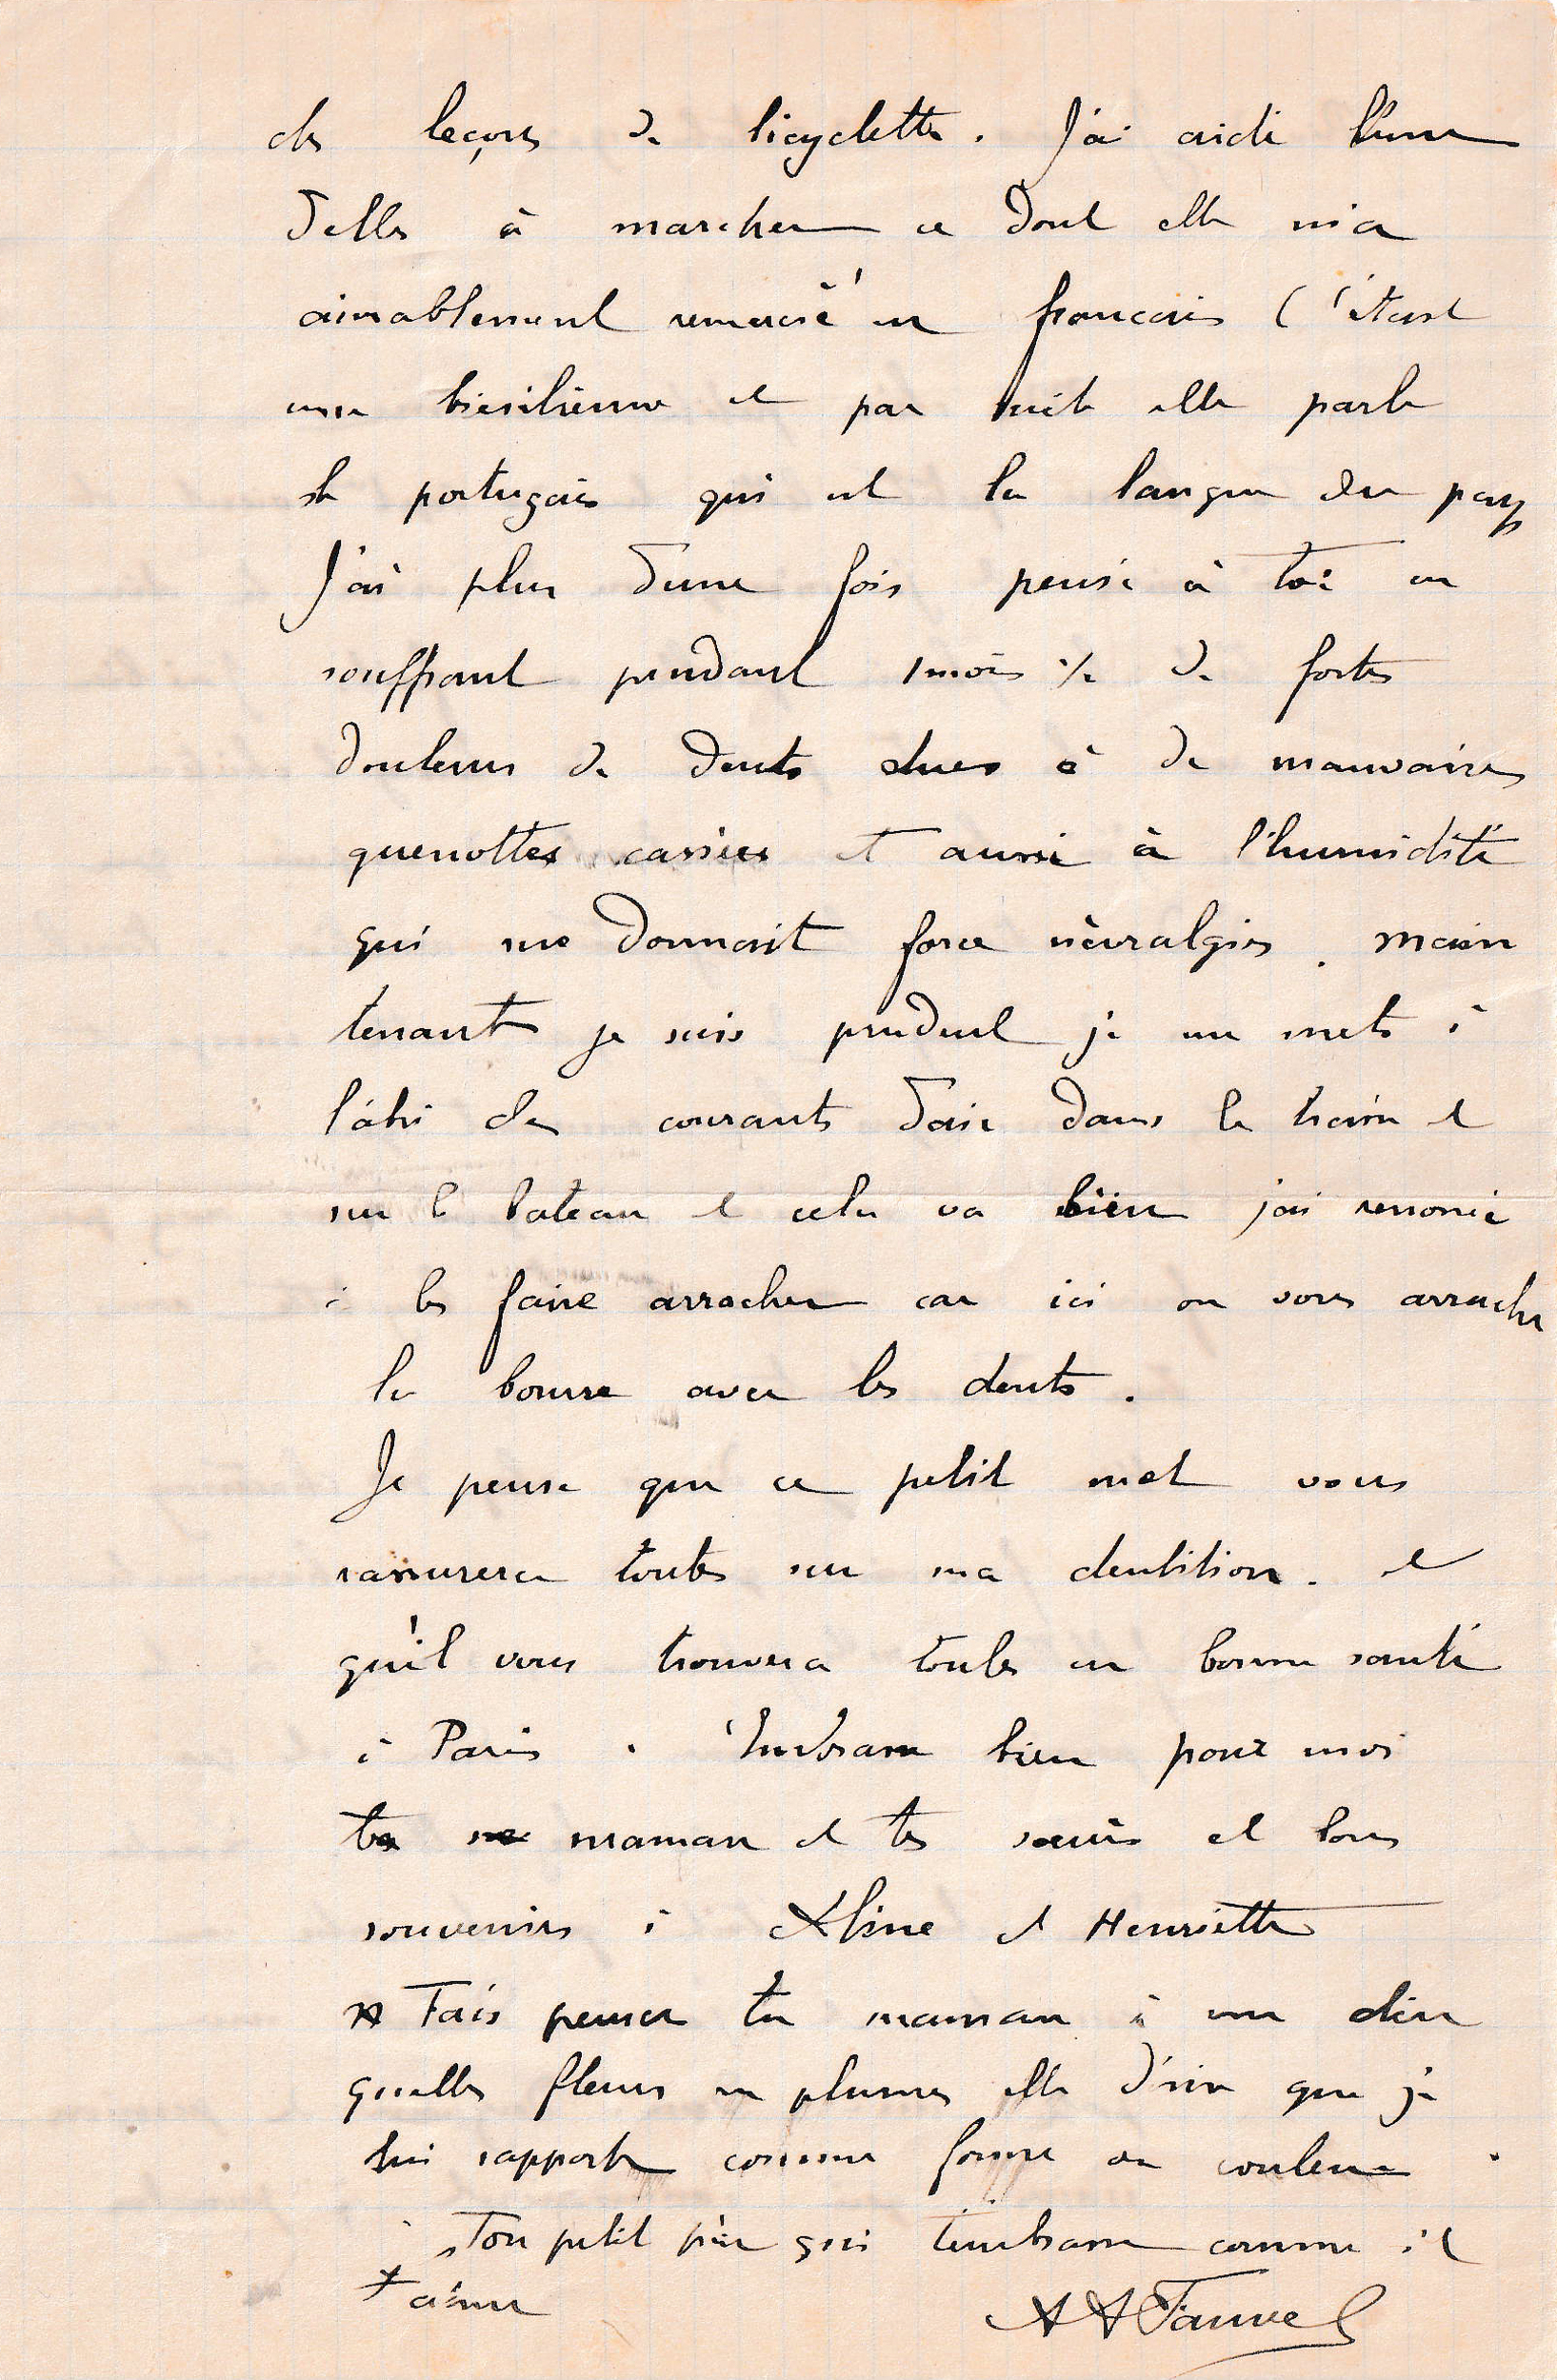 des leçons de bicyclette. J'ai aidé l'une
d'elles à marcher ce dont elle m'a
aimablement remercié en francais C'était
une brésilienne et par suite elle parle
le portugais qui est la langue du pays
J'ai plus d'une fois pensé à toi en
souffrant pendant 1 mois ½ de fortes
douleurs de dents dues à de mauvaises
quenottes cassées et aussi à l'humidité
qui me donnait force névralgies. Main
tenant je suis prudent je me mets à
l'abri des courants d'air dans le train et
sur le bateau et cela va bien j'ai renoncé
à les faire arracher car ici on vous arrache
la bourse avec les dents.
Je pense que ce petit mot vous
rassurera toutes sur ma dentition. et
qu'il vous trouvera toutes en bonne santé
à Paris. Embrasse bien pour moi
ta maman et tes sœurs et bons
souvenirs à Aline et Henriette
Fais penser ta maman à me dire
quelles fleurs en plumes elle désire que je
lui rapporte comme forme ou couleur.
Ton petit père qui t'embrasse comme il
t'aime
AAFauvel